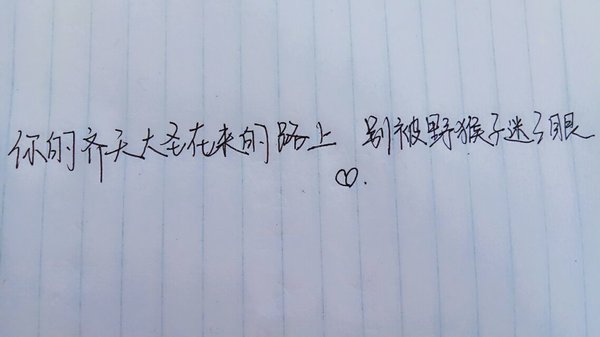 你的齐天大圣在来的路上 别被野猴子迷了眼
♡.